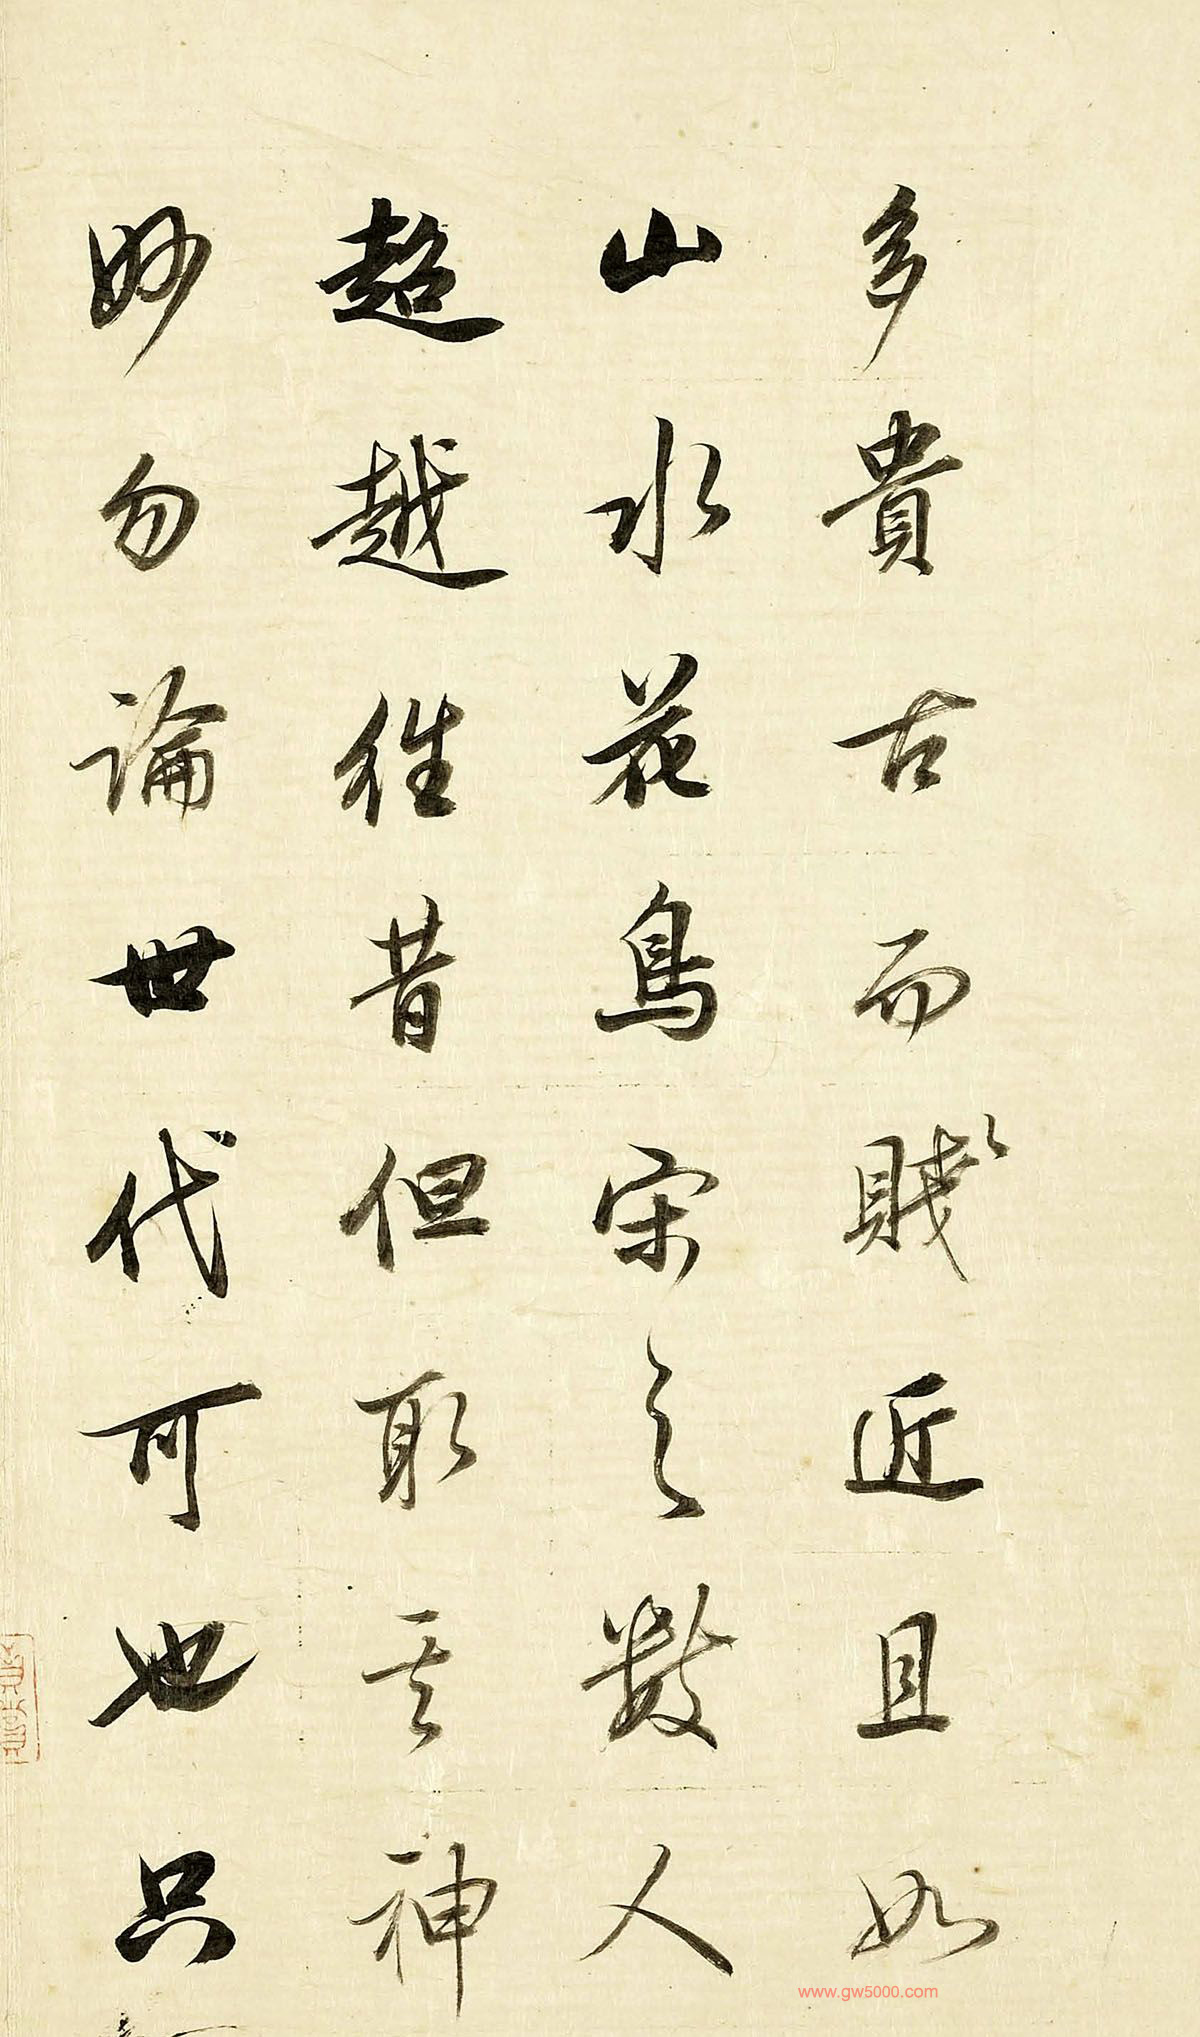 多貴古而賤近且如
山水花鳥宋之數人
超越往昔但取其神
妙勿論世代可也只
www.gw5000.com